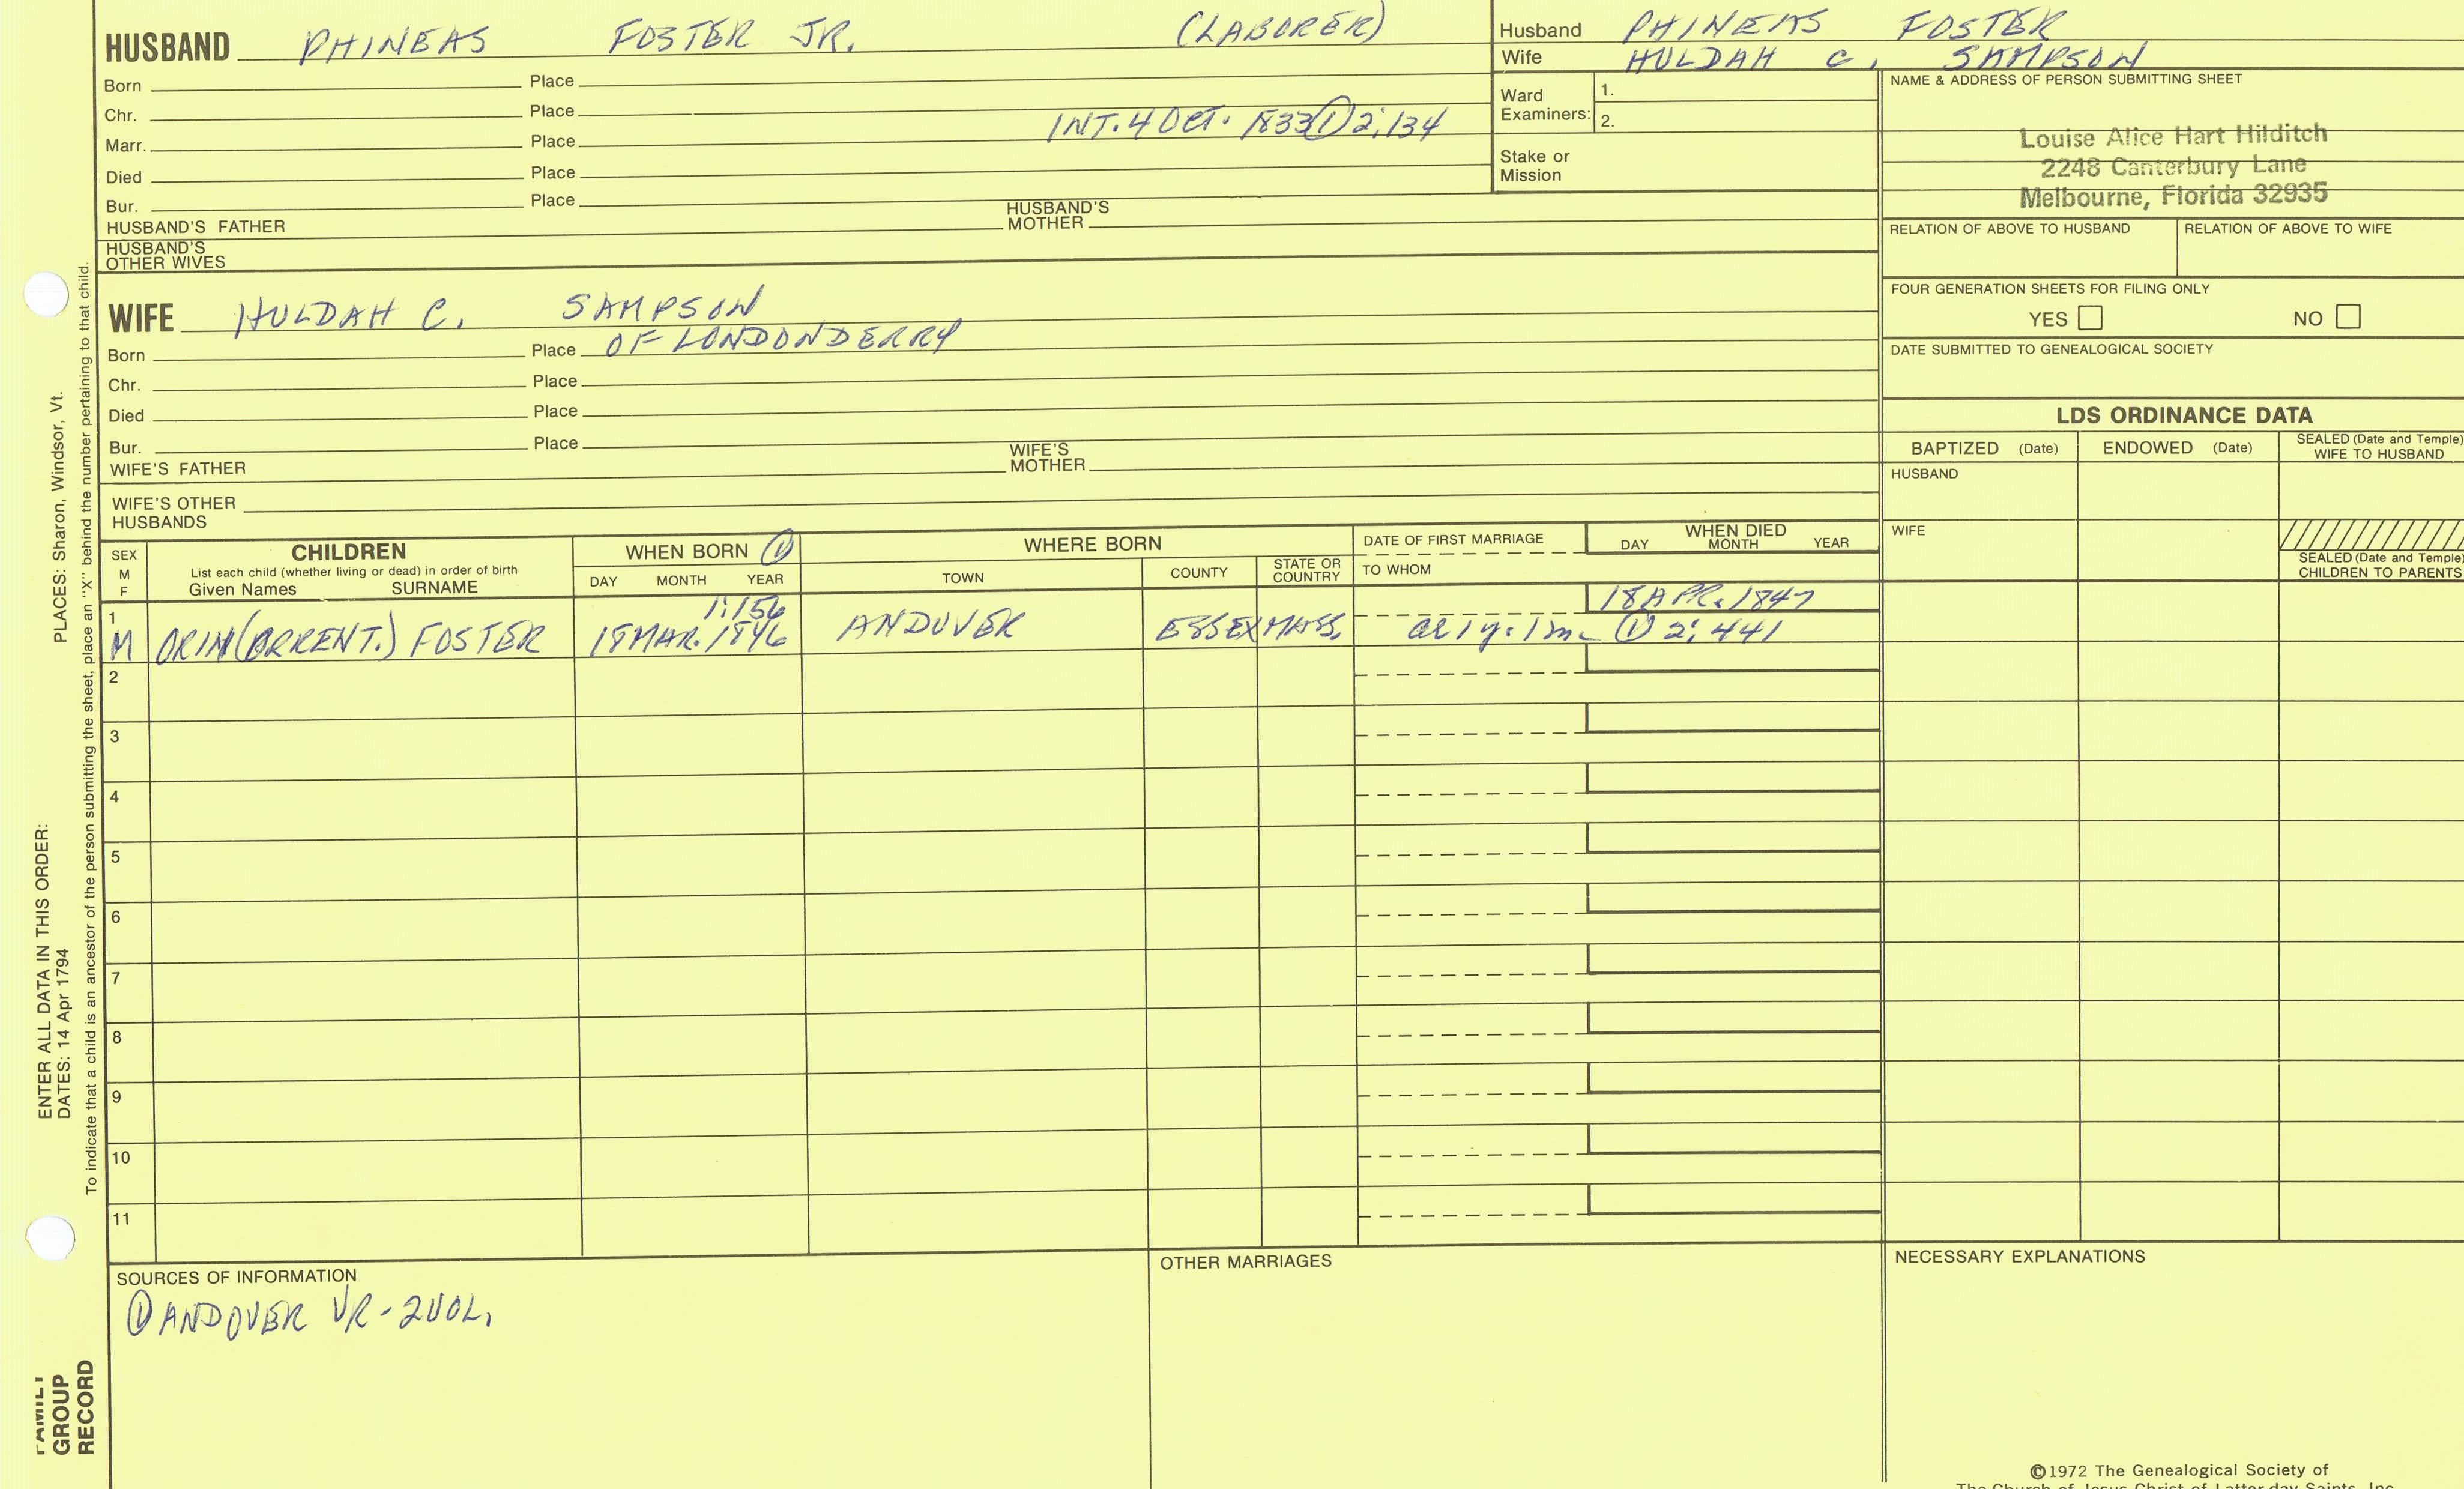 HUSBAND PHINEAS FOSTER JR. (LABORER)
Born Place
Chr. Place
INT. 4 OCT. 1833 ① 2:134
Marr. Place
Died Place
Bur. Place
HUSBAND'S FATHER HUSBAND'S MOTHER
HUSBAND'S OTHER WIVES
Husband PHINEAS FOSTER
Wife HULDAH C. SAMPSON
Ward Examiners: 1.
2.
Stake or Mission
NAME & ADDRESS OF PERSON SUBMITTING SHEET
Louise Alice Hart Hilditch
2248 Canterbury Lane
Melbourne, Florida 32935
RELATION OF ABOVE TO HUSBAND RELATION OF ABOVE TO WIFE
FOUR GENERATION SHEETS FOR FILING ONLY
YES NO
DATE SUBMITTED TO GENEALOGICAL SOCIETY
WIFE HULDAH C. SAMPSON
Born Place OF LONDONDERRY
Chr. Place
Died Place
Bur. Place
WIFE'S FATHER WIFE'S MOTHER
WIFE'S OTHER HUSBANDS
LDS ORDINANCE DATA
BAPTIZED (Date) ENDOWED (Date) SEALED (Date and Temple) WIFE TO HUSBAND
HUSBAND
WIFE
SEALED (Date and Temple)
CHILDREN TO PARENTS
SEX M F
CHILDREN
List each child (whether living or dead) in order of birth
Given Names SURNAME
WHEN BORN ①
DAY MONTH YEAR
WHERE BORN
TOWN COUNTY STATE OR COUNTRY
DATE OF FIRST MARRIAGE
TO WHOM
WHEN DIED
DAY MONTH YEAR
1 1:156 18 APR. 1847
M ORIN (ORRENT.) FOSTER 18 MAR. 1846 ANDOVER ESSEX MASS. ae 1 y. 1 m. ① 2:441
2
3
4
5
6
7
8
9
10
11
SOURCES OF INFORMATION
① ANDOVER VR-2VOL.
OTHER MARRIAGES
NECESSARY EXPLANATIONS
©1972 The Genealogical Society of
The Church of Jesus Christ of Latter-day Saints, Inc.
ENTER ALL DATA IN THIS ORDER:
DATES: 14 Apr 1794 PLACES: Sharon, Windsor, Vt.
To indicate that a child is an ancestor of the person submitting the sheet, place an "X" behind the number pertaining to that child.
FAMILY
GROUP
RECORD